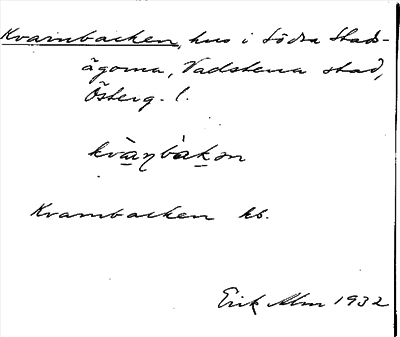 Kvarnbacken, hus i södra Stads-
ägorna, Vadstena stad,
Österg. l.
kvàrnbàkən
Kvarnbacken kb.
Erik Alm 1932